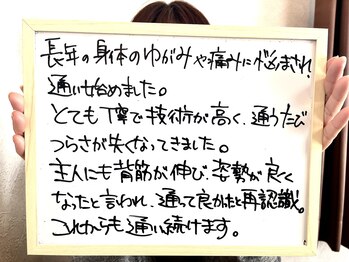 長年の身体のゆがみや痛みに悩まされ、
通い始めました。
とても丁寧で技術が高く、通うたび
つらさが失くなってきました。
主人にも背筋が伸び、姿勢が良く
なったと言われ、通って良かったと再認識。
これからも通い続けます。